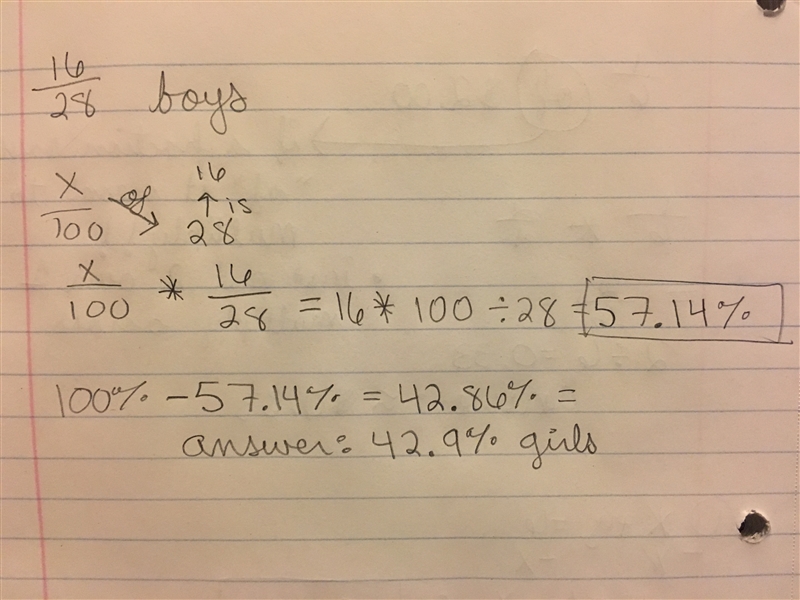 16/28 boys
x/100 of 28 ↑ is 16
x/100 * 16/28 = 16 * 100 ÷ 28 = 57.14%
100% - 57.14% = 42.86% =
answer: 42.9% girls